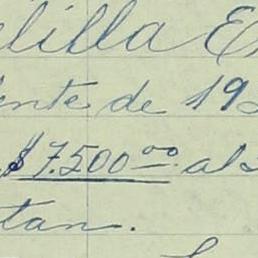 elilla E
ente de 192
$7.500.00 al
tan.